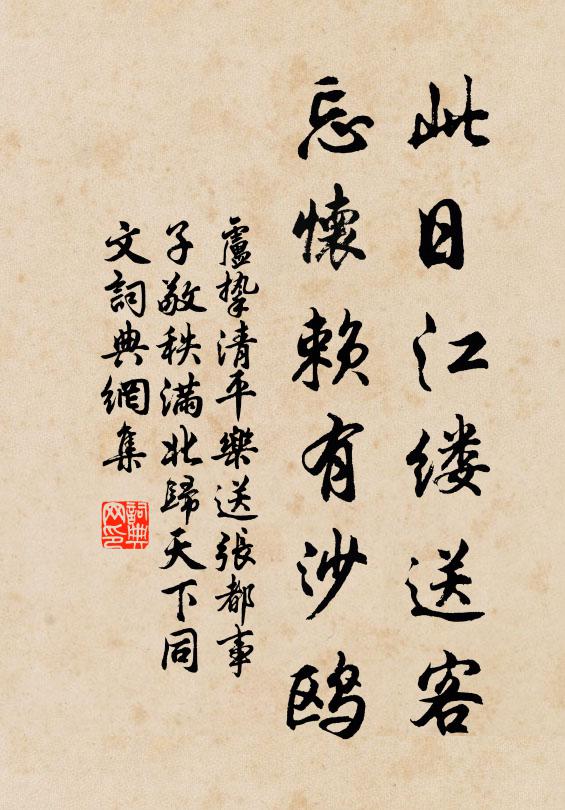 此日江缕送客
忘懷赖有沙鸥
盧摯清平樂送張都事
子敬秩滿北歸天下同
文詞典網集
詞典网印